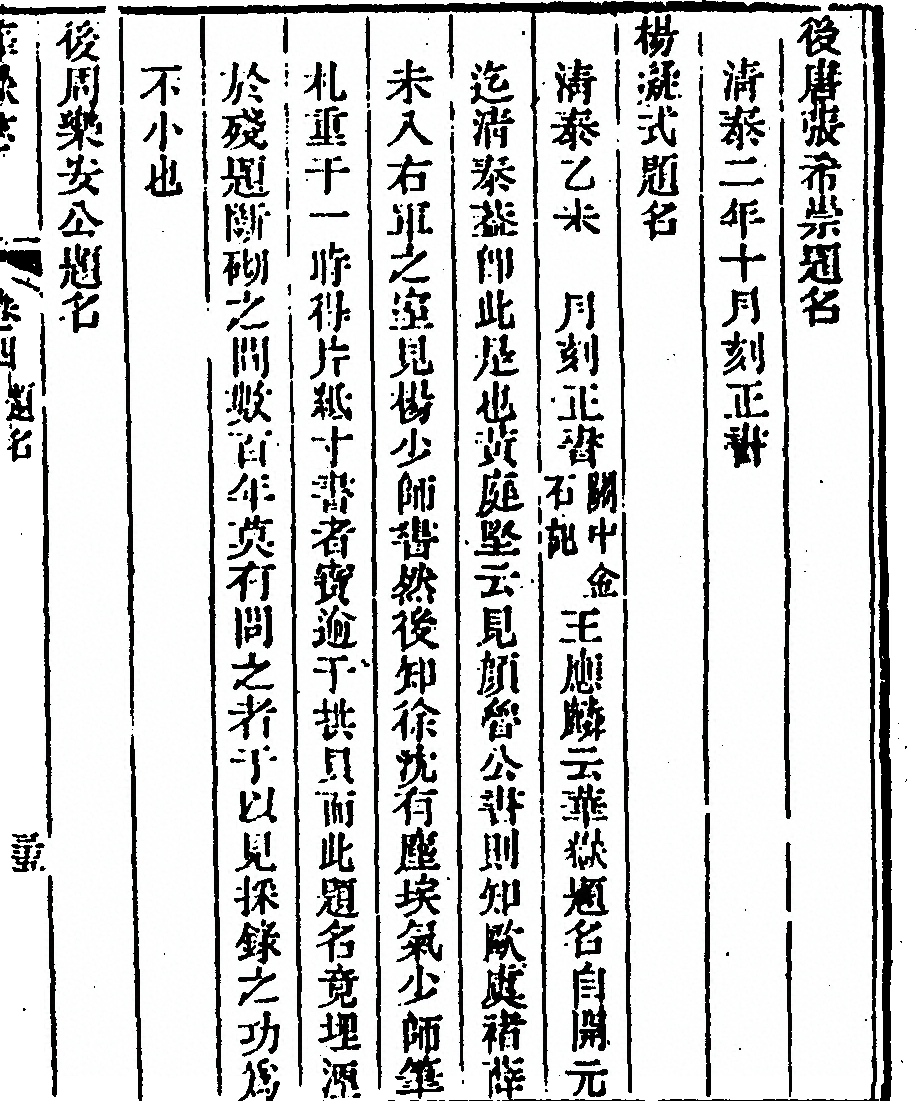 後唐張希崇題名
清泰二年十月刻正書
楊凝式題名
清泰乙未　月刻正書關中金石記王應麟云華嶽題名自開元
迄清泰葢卽此是也黃庭堅云見顏魯公書則知歐虞褚薛
未入右軍之室見楊少師書然後知徐沈有塵埃氣少師筆
札重于一時得片紙寸書者寶逾于拱貝而此題名竟埋湮
於殘題斷砌之間數百年莫有問之者于以見採錄之功爲
不小也
後周樂安公題名
卷四 題名